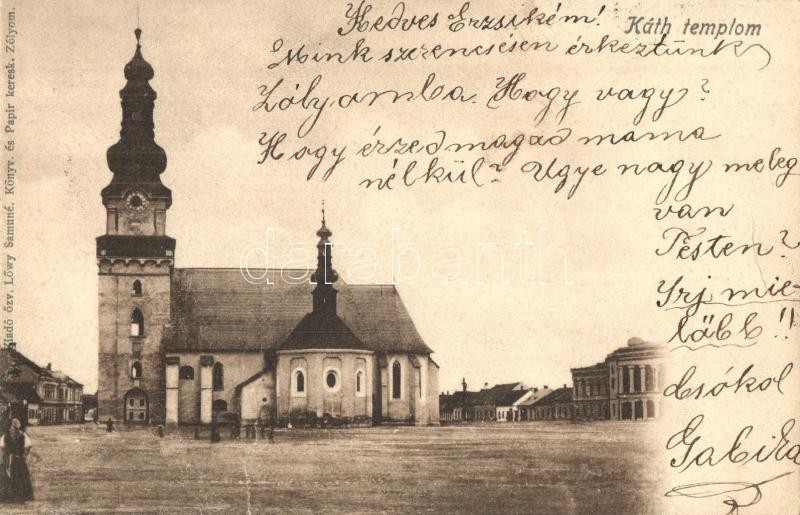 Káth templom
Hedves Erzsikém!
Mink szerencsésen érkeztünk
Zólyomba. Hogy vagy?
Hogy érzed magad mama
nélkül? Ugye nagy meleg
van
Pesten?
Irj mie-
lőbb!!
Csókol
Gabika
Kiadó özv. Löwy Samuné. Könyv. és Papír keresk. Zólyom.
darabanth